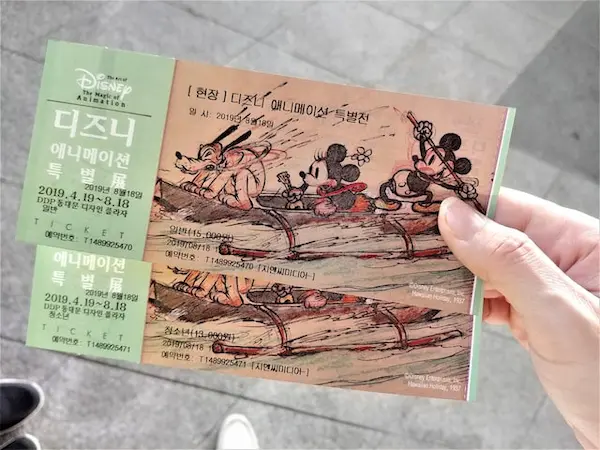 The Art of
DISNEY
The Magic of
Animation
디즈니
애니메이션
특별展
2019년 8월18일
2019.4.19~8.18
DDP 동대문 디자인 플라자
일반
TICKET
예약번호: T1489925470
[ 현장 ] 디즈니 애니메이션 특별전
일 시: 2019년 8월18일
일반(15,000원)
2019/08/18
예약번호: T1489925470 [지엔씨미디어-]
©Disney Enterprises, Inc.
Hawaiian Holiday, 1937
애니메이션
특별展
2019년 8월18일
2019.4.19~8.18
DDP 동대문 디자인 플라자
청소년
TICKET
예약번호: T1489925471
청소년(13,000원)
2019/08/18
예약번호: T1489925471 [지엔씨미디어-]
©Disney Enterprises, Inc.
Hawaiian Holiday, 1937